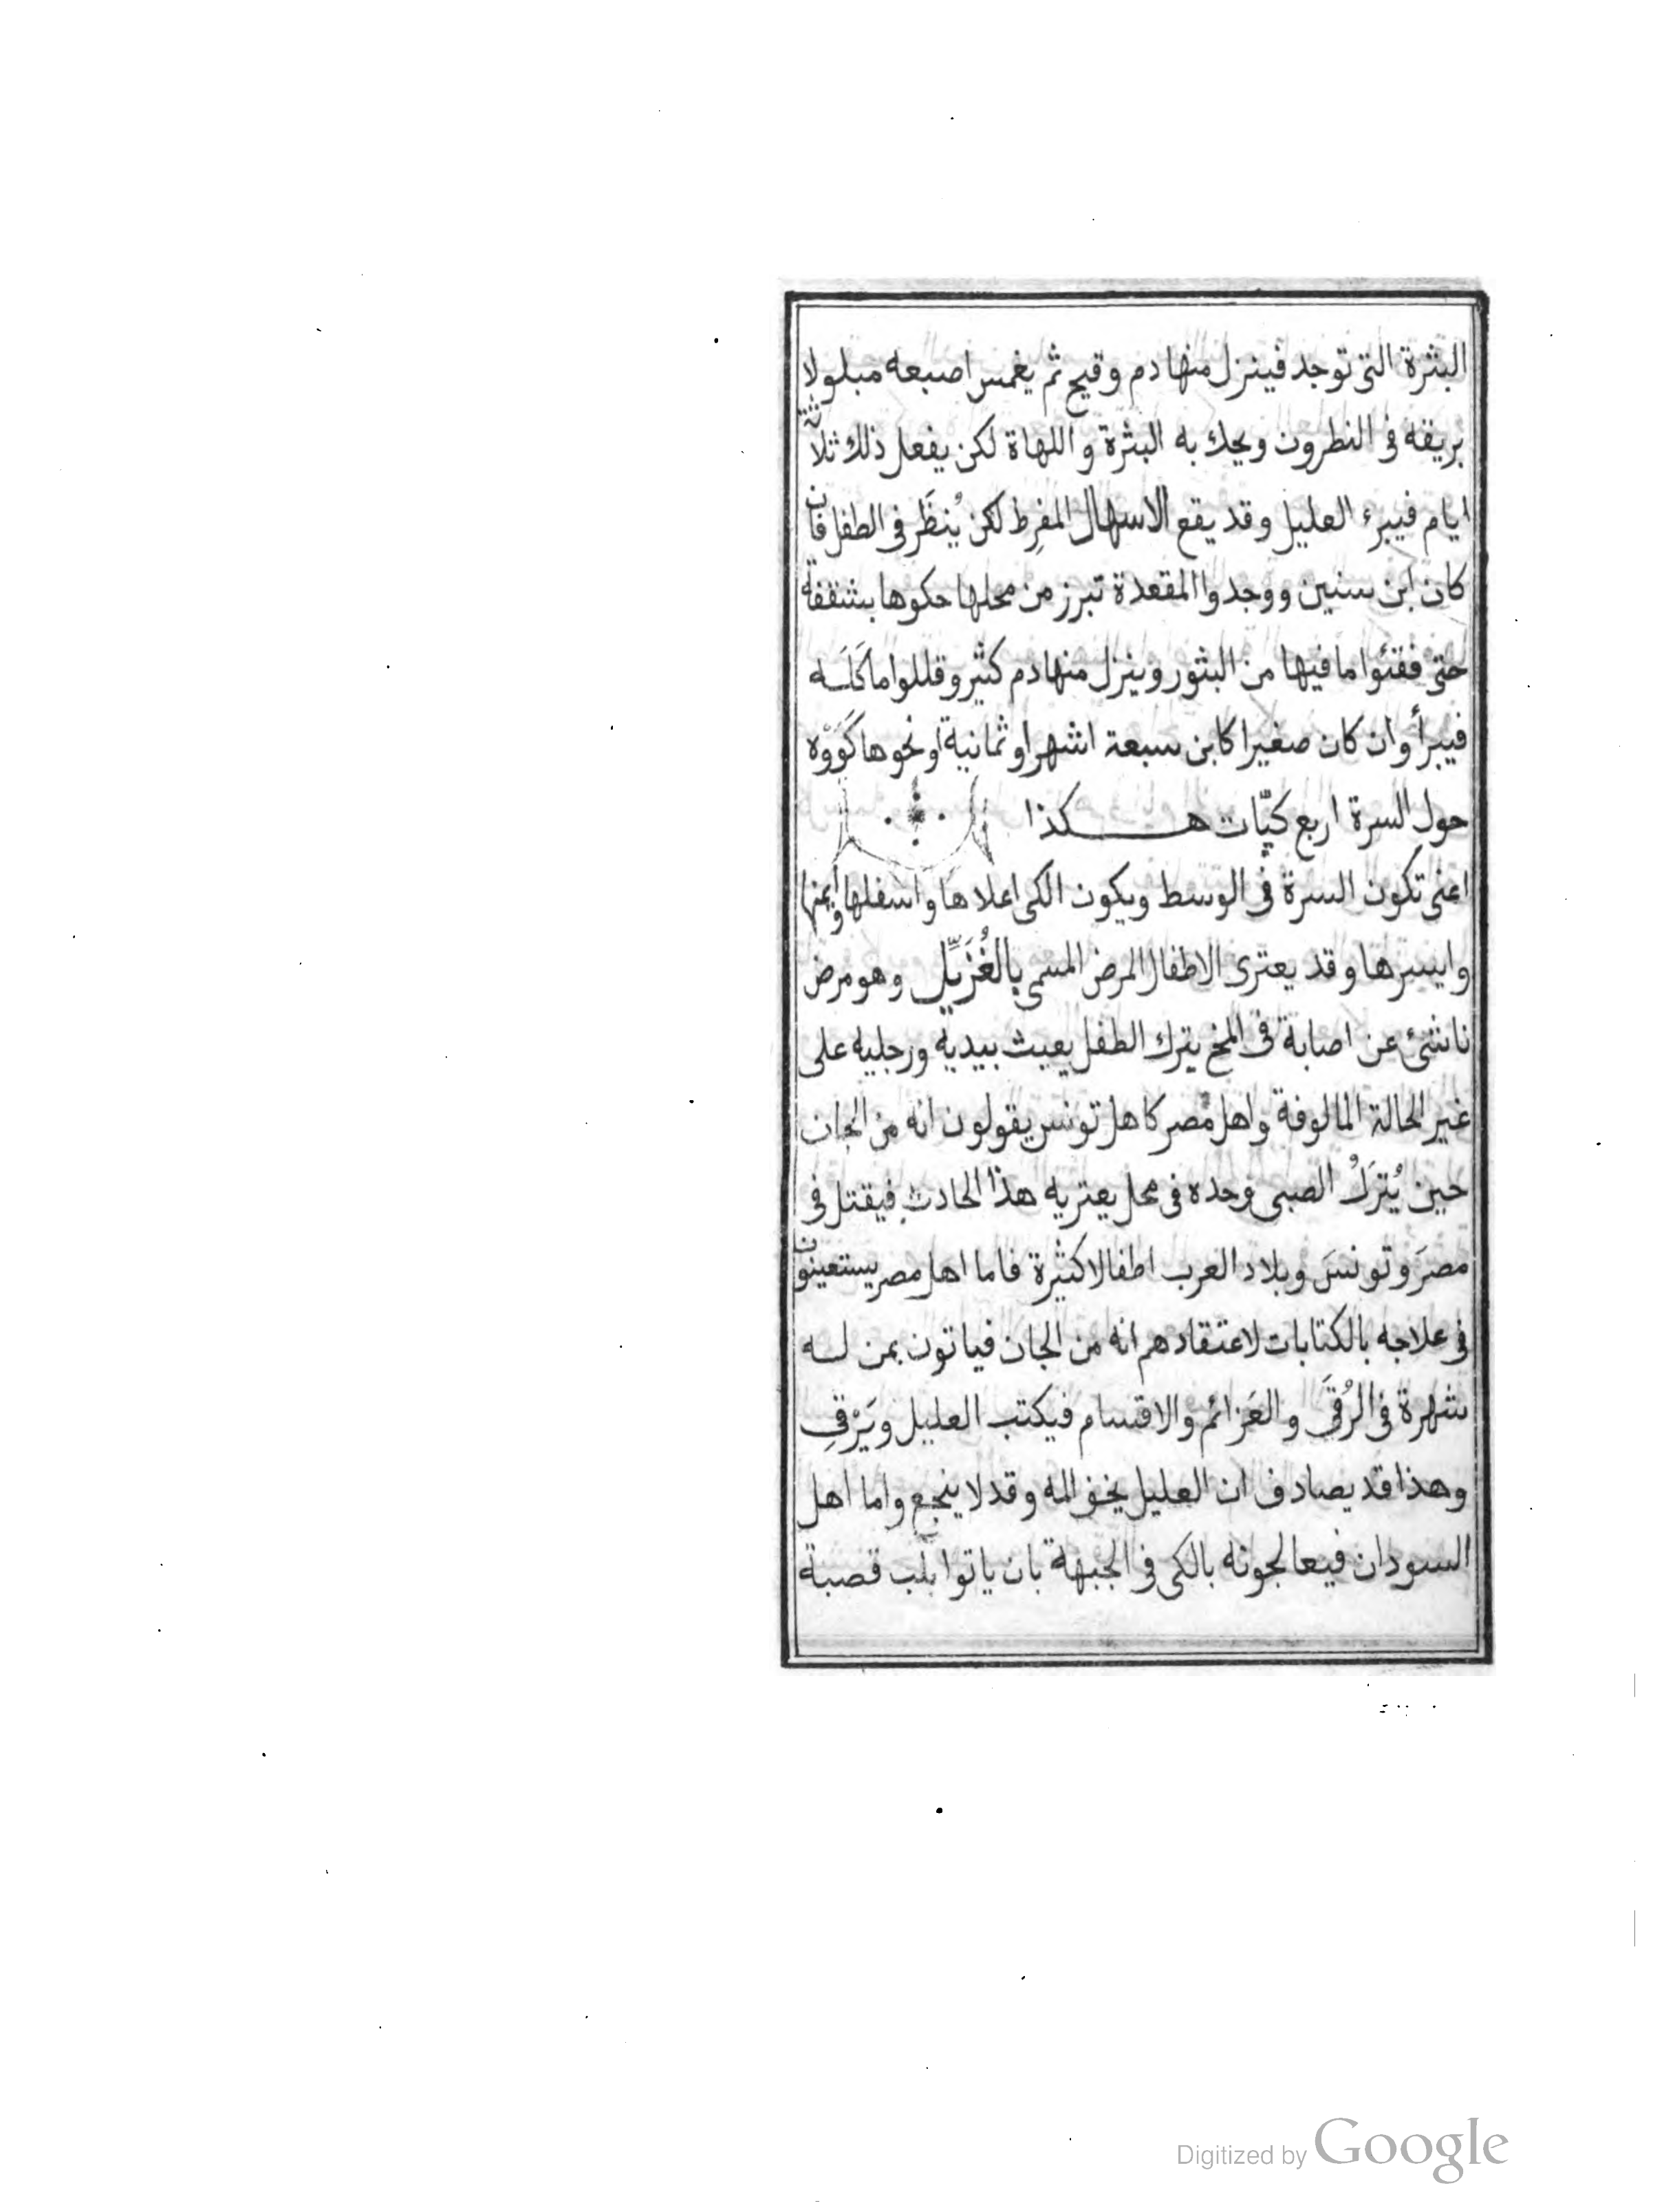 البثرة التى توجد فينزل منها دم وقيح ثم يغمس اصبعه مبلولا
بريقه فى النطرون ويحك به البثرة واللهاة لكن يفعل ذلك ثلاثة
ايام فيبرء العليل وقد يقع الاسهال المفرِط لكن يُنظَر فى الطفل فان
كان ابن سنين ووجدوا المقعدة تبرز من محلها حكوها بشقفة
حتى فقئوا ما فيها من البثور وينزل منها دم كثير وقللوا ماكَلَه
فيبرأ وان كان صغيرا كابن سبعة اشهر او ثمانية او نحوها كَوَوْه
حول السرة اربع كيّات هـكذا
اعنى تكون السرة فى الوسط ويكون الكى اعلاها واسفلها وايمنها
وايسرها وقد يعترى الاطفال المرض المسمى بالغُزَيِّل وهو مرض
ناشئ عن اصابة فى المخ يترك الطفل يعبث بيديه ورجليه على
غير الحالة المالوفة واهل مصر كاهل تونس يقولون انه من الجان
حين يُترَكُ الصبى وحده فى محل يعتريه هذا الحادث فيقتل فى
مصرَ وتونسَ وبلاد العرب اطفالا كثيرة فاما اهل مصر يستعينون
فى علاجه بالكتابات لاعتقادهم انه من الجان فياتون بمن له
شهرة فى الرُقَى والعَزائم والاقسام فيكتب العليل ويَرْقِى
وهذا قد يصادف ان العليل يخف المه وقد لا ينجع واما اهل
السودان فيعالجونه بالكى فى الجبهة بان ياتوا بلب قصبة
Digitized by Google